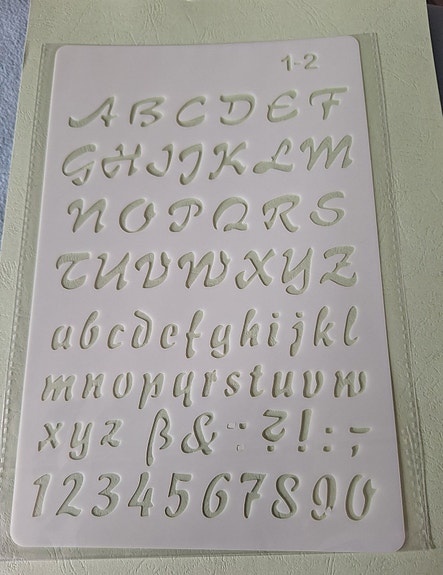 1-2
A B C D E F
G H I J K L M
N O P Q R S
T U V W X Y Z
a b c d e f g h i j k l
m n o p q r s t u v w
x y z ß & : ? ! : , -
1 2 3 4 5 6 7 8 9 0